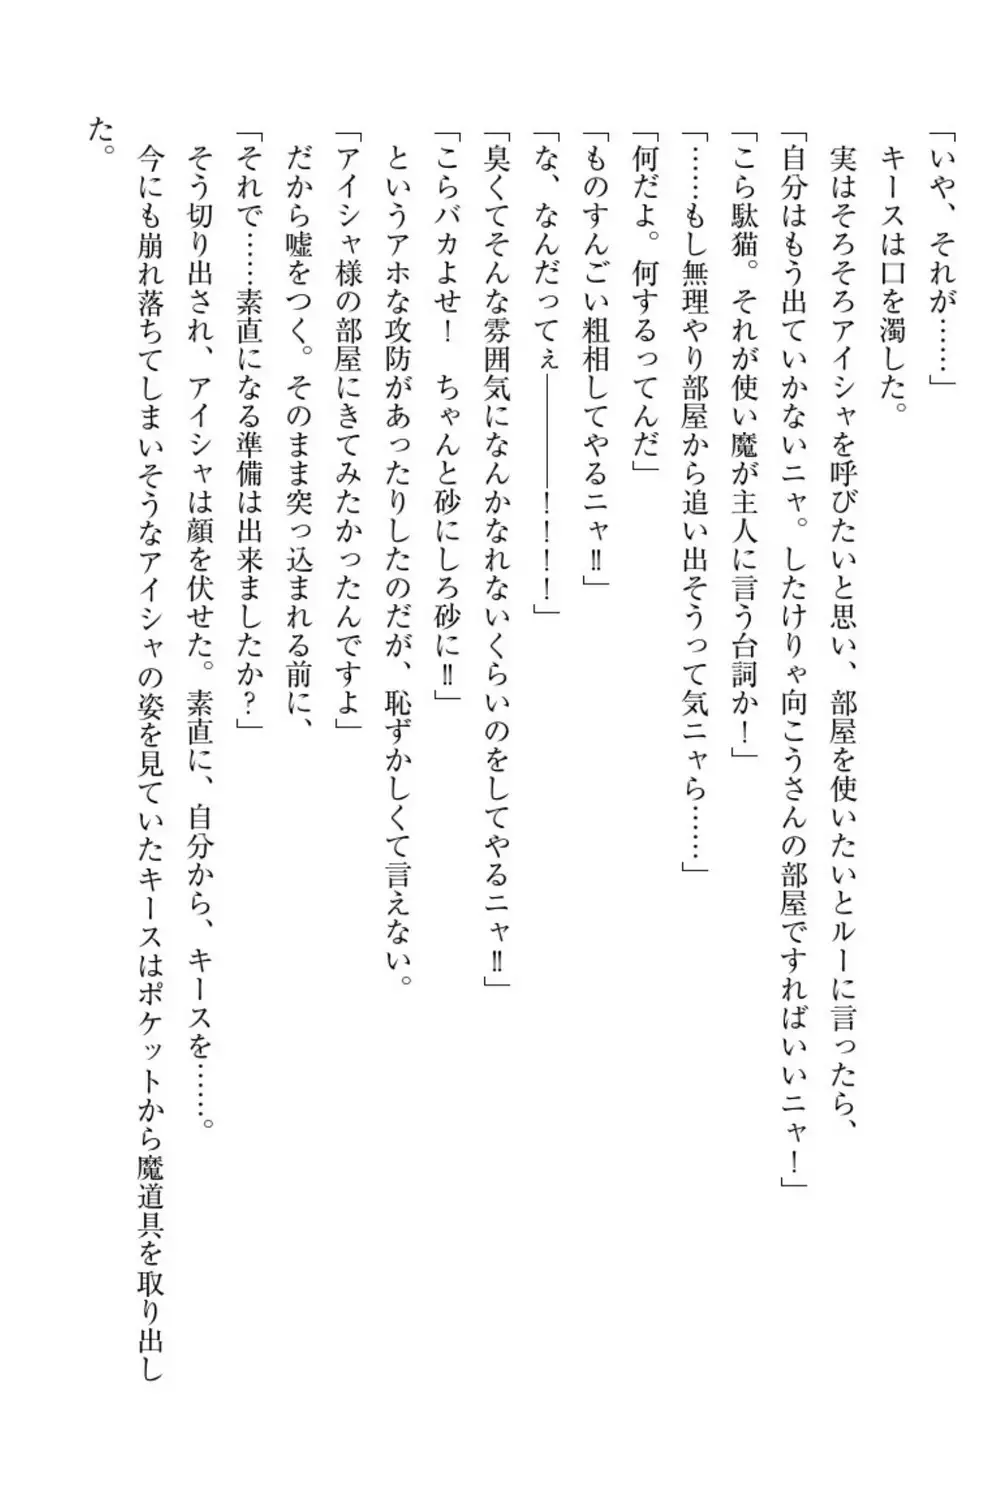 「いや、それが……」
　キースは口を濁した。
　実はそろそろアイシャを呼びたいと思い、部屋を使いたいとルーに言ったら、
「自分はもう出ていかないニャ。したけりゃ向こうさんの部屋ですればいいニャ！」
「こら駄猫。それが使い魔が主人に言う台詞か！」
「……もし無理やり部屋から追い出そうって気ニャら……」
「何だよ。何するってんだ」
「ものすんごい粗相してやるニャ‼」
「な、なんだってぇ――――！！！！」
「臭くてそんな雰囲気になんかなれないくらいのをしてやるニャ‼」
「こらバカよせ！　ちゃんと砂にしろ砂に‼」
　というアホな攻防があったりしたのだが、恥ずかしくて言えない。
「アイシャ様の部屋にきてみたかったんですよ」
　だから嘘をつく。そのまま突っ込まれる前に、
「それで……素直になる準備は出来ましたか？」
　そう切り出され、アイシャは顔を伏せた。素直に、自分から、キースを……。
　今にも崩れ落ちてしまいそうなアイシャの姿を見ていたキースはポケットから魔道具を取り出し
た。